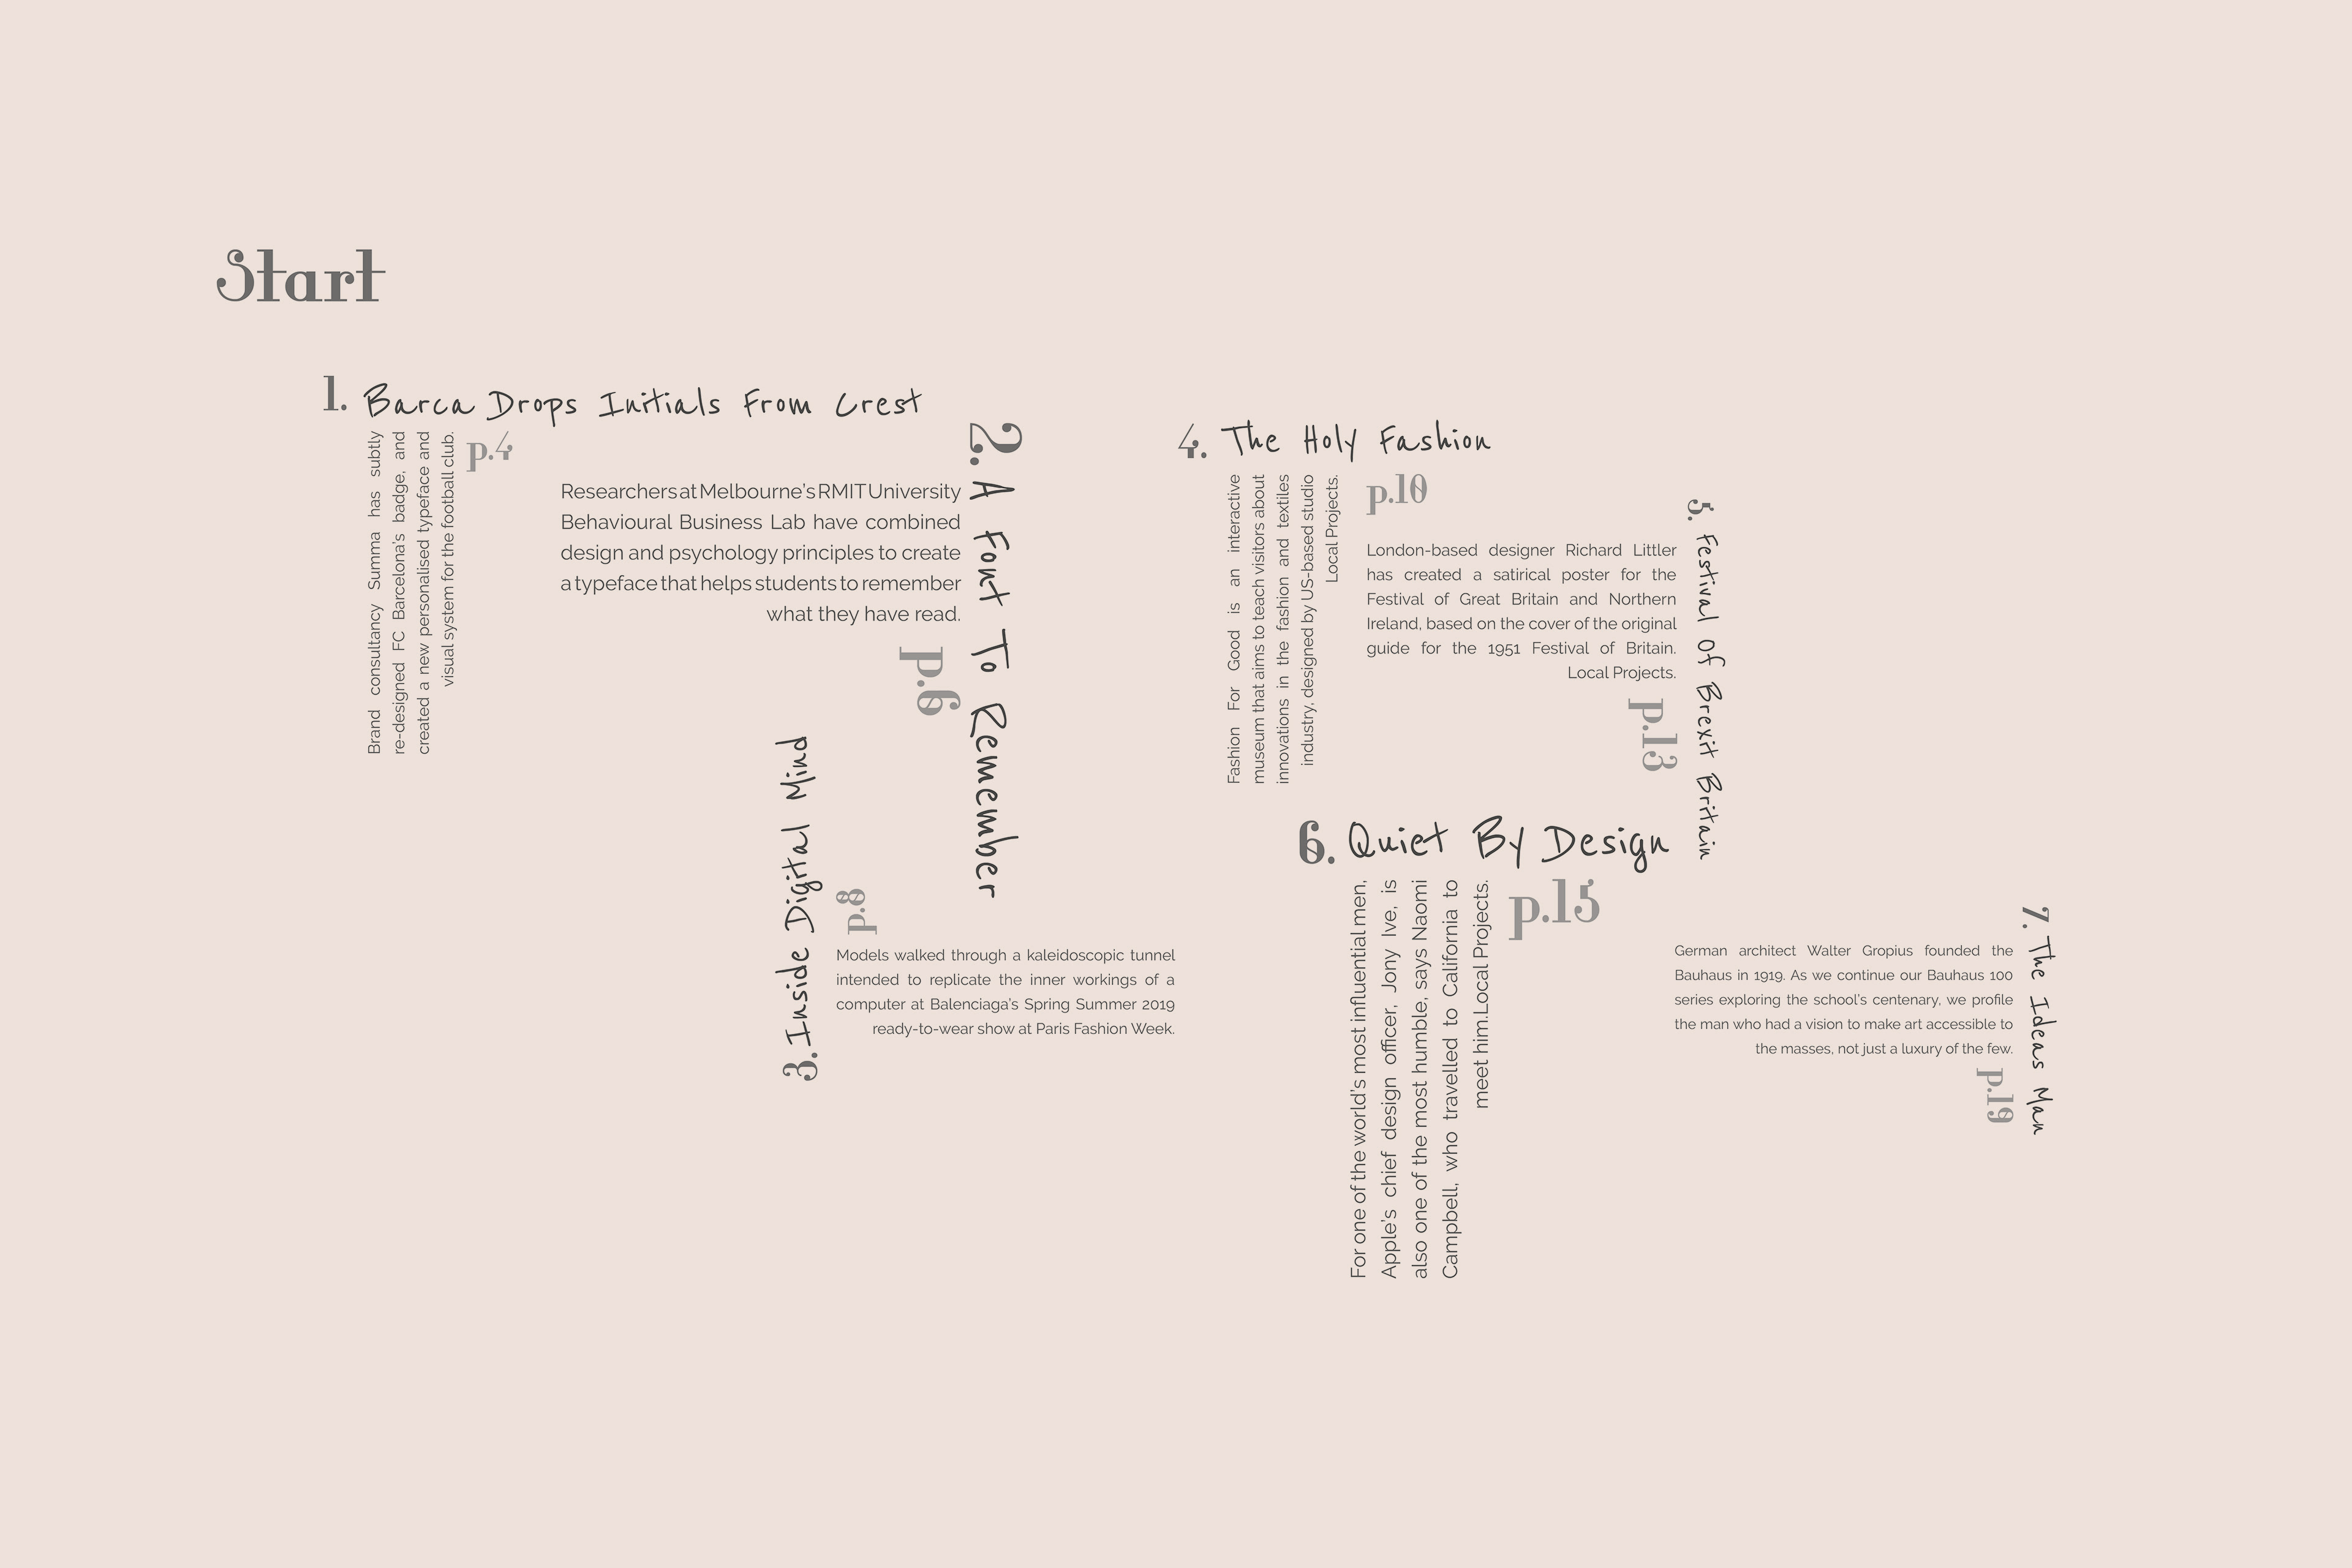 Start
1. Barca Drops Initials From Crest
Brand consultancy Summa has subtly
re-designed FC Barcelona's badge, and
created a new personalised typeface and
visual system for the football club.
p.4
2. A Font To Remember
Researchers at Melbourne's RMIT University
Behavioural Business Lab have combined
design and psychology principles to create
a typeface that helps students to remember
what they have read.
p.6
3. Inside Digital Mind
p.8
Models walked through a kaleidoscopic tunnel
intended to replicate the inner workings of a
computer at Balenciaga's Spring Summer 2019
ready-to-wear show at Paris Fashion Week.
4. The Holy Fashion
Fashion For Good is an interactive
museum that aims to teach visitors about
innovations in the fashion and textiles
industry, designed by US-based studio
Local Projects.
p.10
5. Festival Of Brexit Britain
London-based designer Richard Littler
has created a satirical poster for the
Festival of Great Britain and Northern
Ireland, based on the cover of the original
guide for the 1951 Festival of Britain.
Local Projects.
p.13
6. Quiet By Design
For one of the world's most influential men,
Apple's chief design officer, Jony Ive, is
also one of the most humble, says Naomi
Campbell, who travelled to California to
meet him.Local Projects.
p.15
7. The Ideas Man
German architect Walter Gropius founded the
Bauhaus in 1919. As we continue our Bauhaus 100
series exploring the school's centenary, we profile
the man who had a vision to make art accessible to
the masses, not just a luxury of the few.
p.19